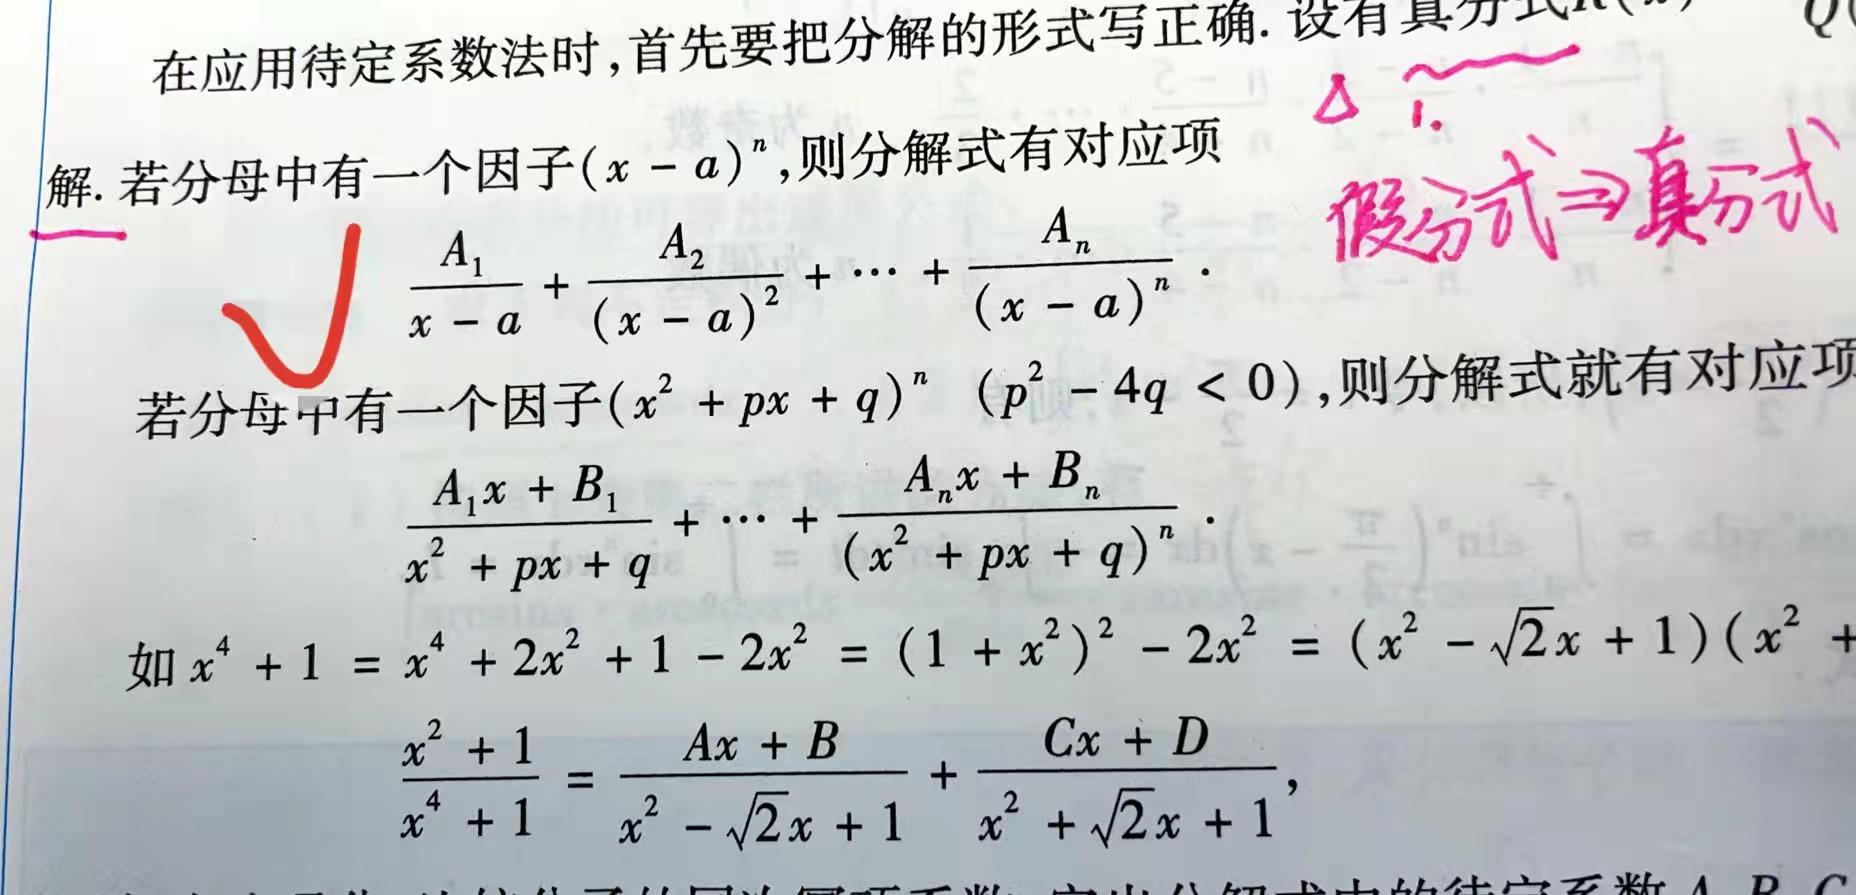 在应用待定系数法时,首先要把分解的形式写正确. 设有真分式R(x) Q(
△ 1.
解. 若分母中有一个因子(x - a)^n,则分解式有对应项
假分式⇒真分式
A_1/(x - a) + A_2/(x - a)^2 + … + A_n/(x - a)^n .
若分母中有一个因子(x^2 + px + q)^n (p^2 - 4q < 0),则分解式就有对应项
(A_1x + B_1)/(x^2 + px + q) + … + (A_nx + B_n)/(x^2 + px + q)^n .
如 x^4 + 1 = x^4 + 2x^2 + 1 - 2x^2 = (1 + x^2)^2 - 2x^2 = (x^2 - √2x + 1)(x^2 +
(x^2 + 1)/(x^4 + 1) = (Ax + B)/(x^2 - √2x + 1) + (Cx + D)/(x^2 + √2x + 1),